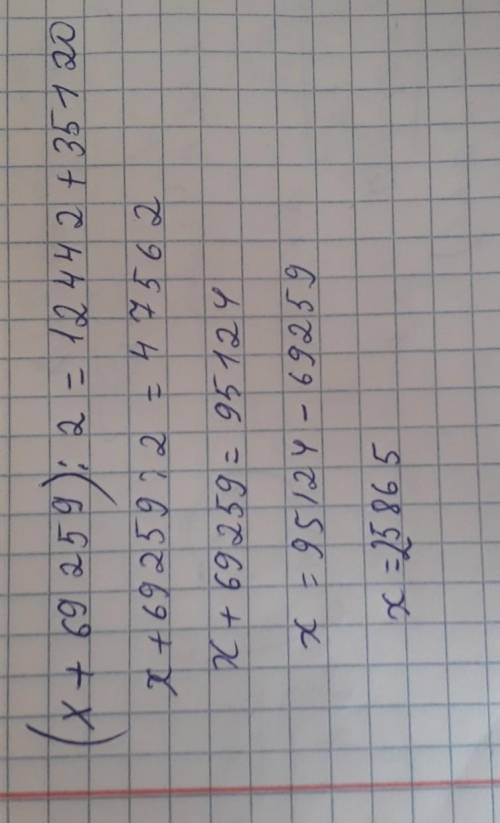 (x + 69259) : 2 = 12442 + 35120
x + 69259 : 2 = 47562
x + 69259 = 95124
x = 95124 - 69259
x = 25865